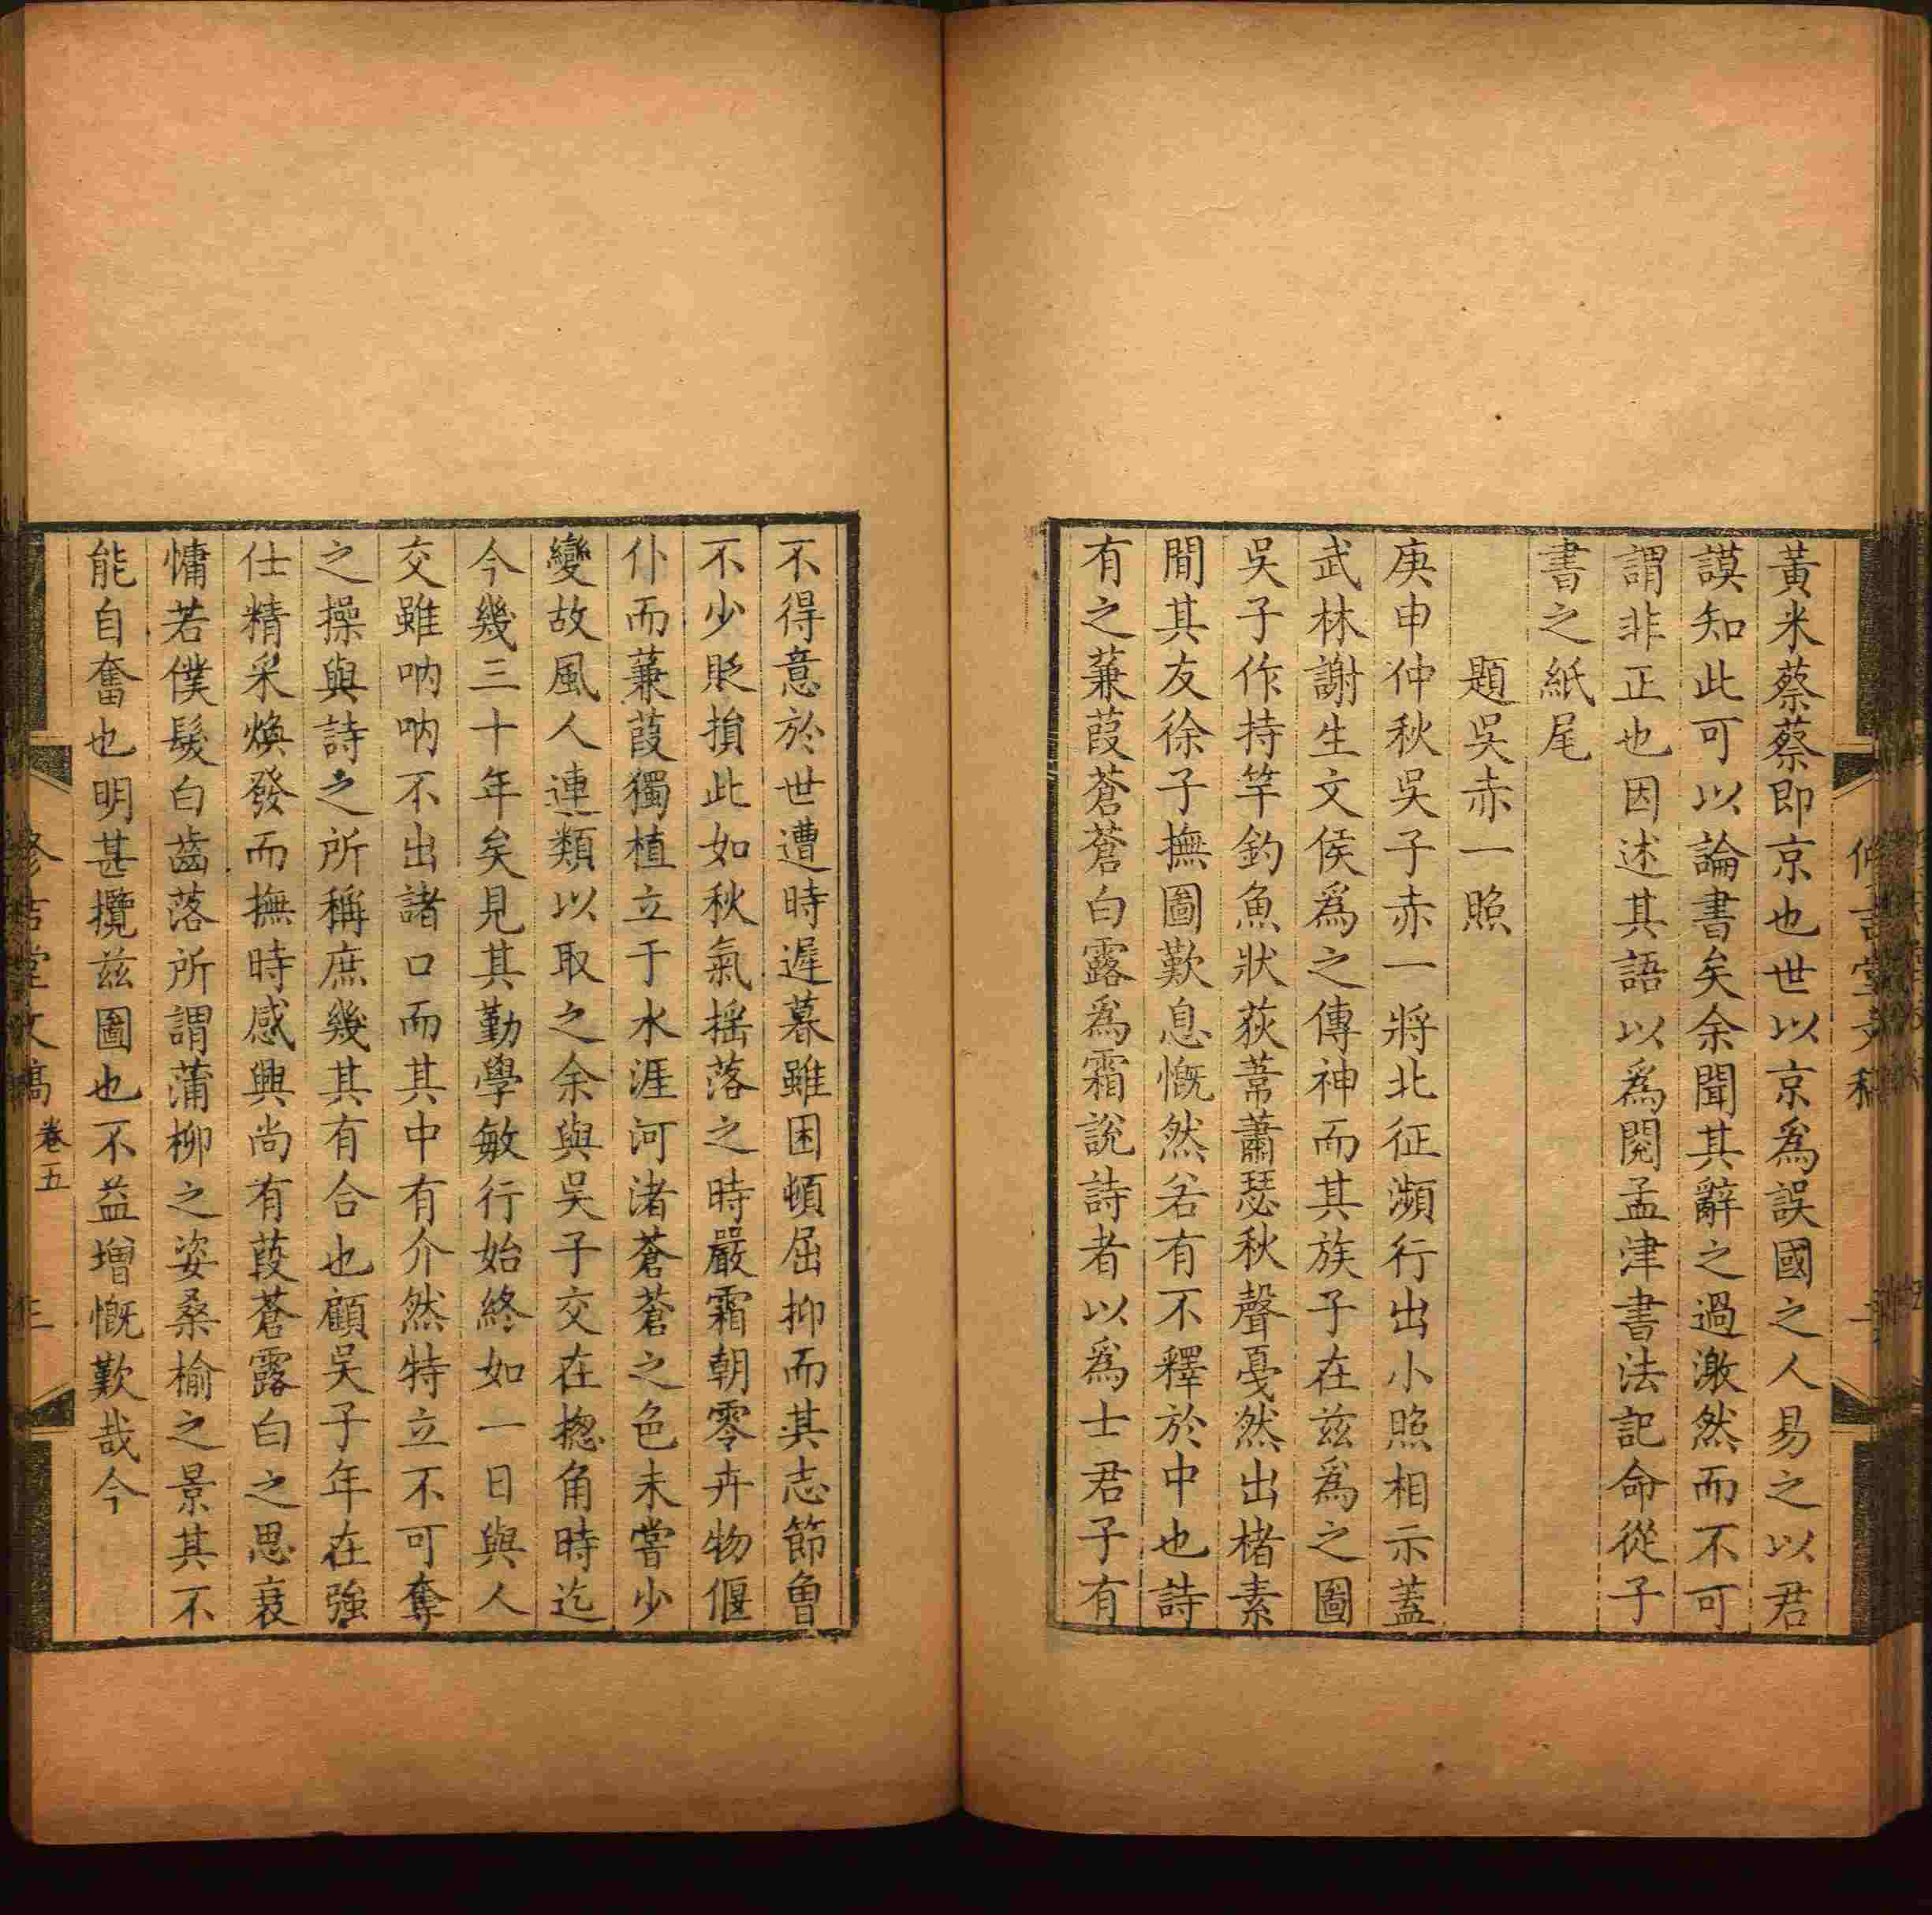 黃米蔡蔡即京也世以京爲誤國之人易之以君
謨知此可以論書矣余聞其辭之過激然而不可
謂非正也因述其語以爲閱孟津書法記命從子
書之紙尾
題吳赤一照
庚申仲秋吳子赤一將北征瀕行出小照相示蓋
武林謝生文侯爲之傳神而其族子在茲爲之圖
吳子作持竿釣魚狀荻葦蕭瑟秋聲戞然出楮素
間其友徐子撫圖歎息慨然若有不釋於中也詩
有之蒹葭蒼蒼白露爲霜說詩者以爲士君子有
不得意於世遭時遲暮雖困頓屈抑而其志節曾
不少貶損此如秋氣搖落之時嚴霜朝零卉物偃
仆而蒹葭獨植立于水涯河渚蒼蒼之色未嘗少
變故風人連類以取之余與吳子交在揔角時迄
今幾三十年矣見其勤學敏行始終如一日與人
交雖吶吶不出諸口而其中有介然特立不可奪
之操與詩之所稱庶幾其有合也顧吳子年在強
仕精采煥發而撫時感興尚有葭蒼露白之思衰
慵若僕髮白齒落所謂蒲柳之姿桑榆之景其不
能自奮也明甚攬茲圖也不益增慨歎哉今
卷五